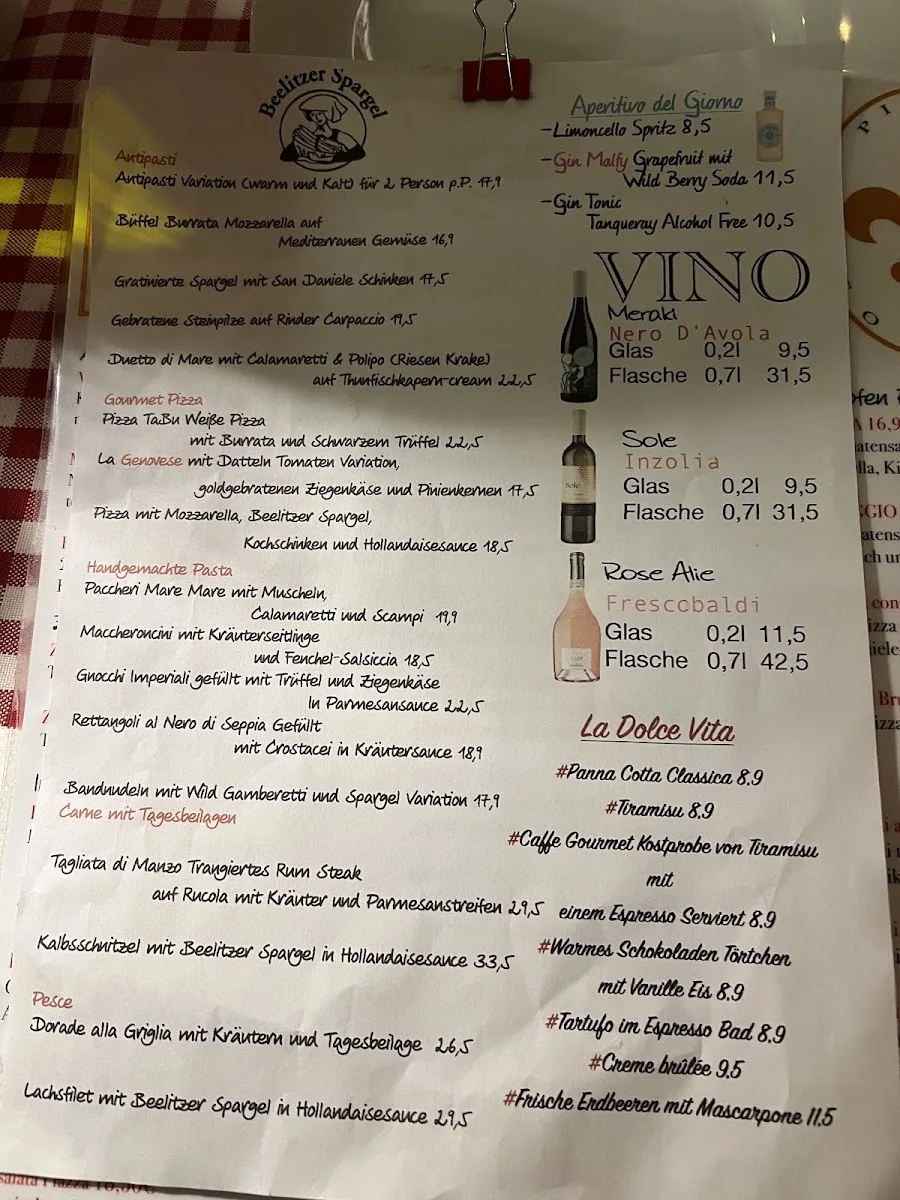 Beelitzer Spargel
Antipasti
Antipasti Variation (warm und Kalt) für 2 Person p.P. 17,9
Büffel Burrata Mozzarella auf
Mediterranen Gemüse 16,9
Gratinierte Spargel mit San Daniele Schinken 17,5
Gebratene Steinpilze auf Rinder Carpaccio 19,5
Duetto di Mare mit Calamaretti & Polipo (Riesen Krake)
auf Thunfischkapern-cream 22,5
Gourmet Pizza
Pizza TaBu Weiße Pizza
mit Burrata und Schwarzem Trüffel 22,5
La Genovese mit Datteln Tomaten Variation,
goldgebratenen Ziegenkäse und Pinienkernen 17,5
Pizza mit Mozzarella, Beelitzer Spargel,
Kochschinken und Hollandaisesauce 18,5
Handgemachte Pasta
Paccheri Mare Mare mit Muscheln,
Calamaretti und Scampi 19,9
Maccheroncini mit Kräuterseitlinge
und Fenchel-Salsiccia 18,5
Gnocchi Imperiali gefüllt mit Trüffel und Ziegenkäse
In Parmesansauce 22,5
Rettangoli al Nero di Seppia Gefüllt
mit Crostacei in Kräutersauce 18,9
Bandnudeln mit Wild Gamberetti und Spargel Variation 17,9
Carne mit Tagesbeilagen
Tagliata di Manzo Trangiertes Rum Steak
auf Rucola mit Kräuter und Parmesanstreifen 29,5
Kalbsschnitzel mit Beelitzer Spargel in Hollandaisesauce 33,5
Pesce
Dorade alla Griglia mit Kräutern und Tagesbeilage 26,5
Lachsfilet mit Beelitzer Spargel in Hollandaisesauce 29,5
Aperitivo del Giorno
-Limoncello Spritz 8,5
-Gin Malfy Grapefruit mit
Wild Berry Soda 11,5
-Gin Tonic
Tanqueray Alcohol Free 10,5
VINO
Meraki
Nero D'Avola
Glas 0,2l 9,5
Flasche 0,7l 31,5
Sole
Inzolia
Glas 0,2l 9,5
Flasche 0,7l 31,5
Rose Alie
Frescobaldi
Glas 0,2l 11,5
Flasche 0,7l 42,5
La Dolce Vita
#Panna Cotta Classica 8.9
#Tiramisu 8.9
#Caffe Gourmet Kostprobe von Tiramisu
mit
einem Espresso Serviert 8.9
#Warmes Schokoladen Törtchen
mit Vanille Eis 8.9
#Tartufo im Espresso Bad 8.9
#Creme brûlée 9.5
#Frische Erdbeeren mit Mascarpone 11.5